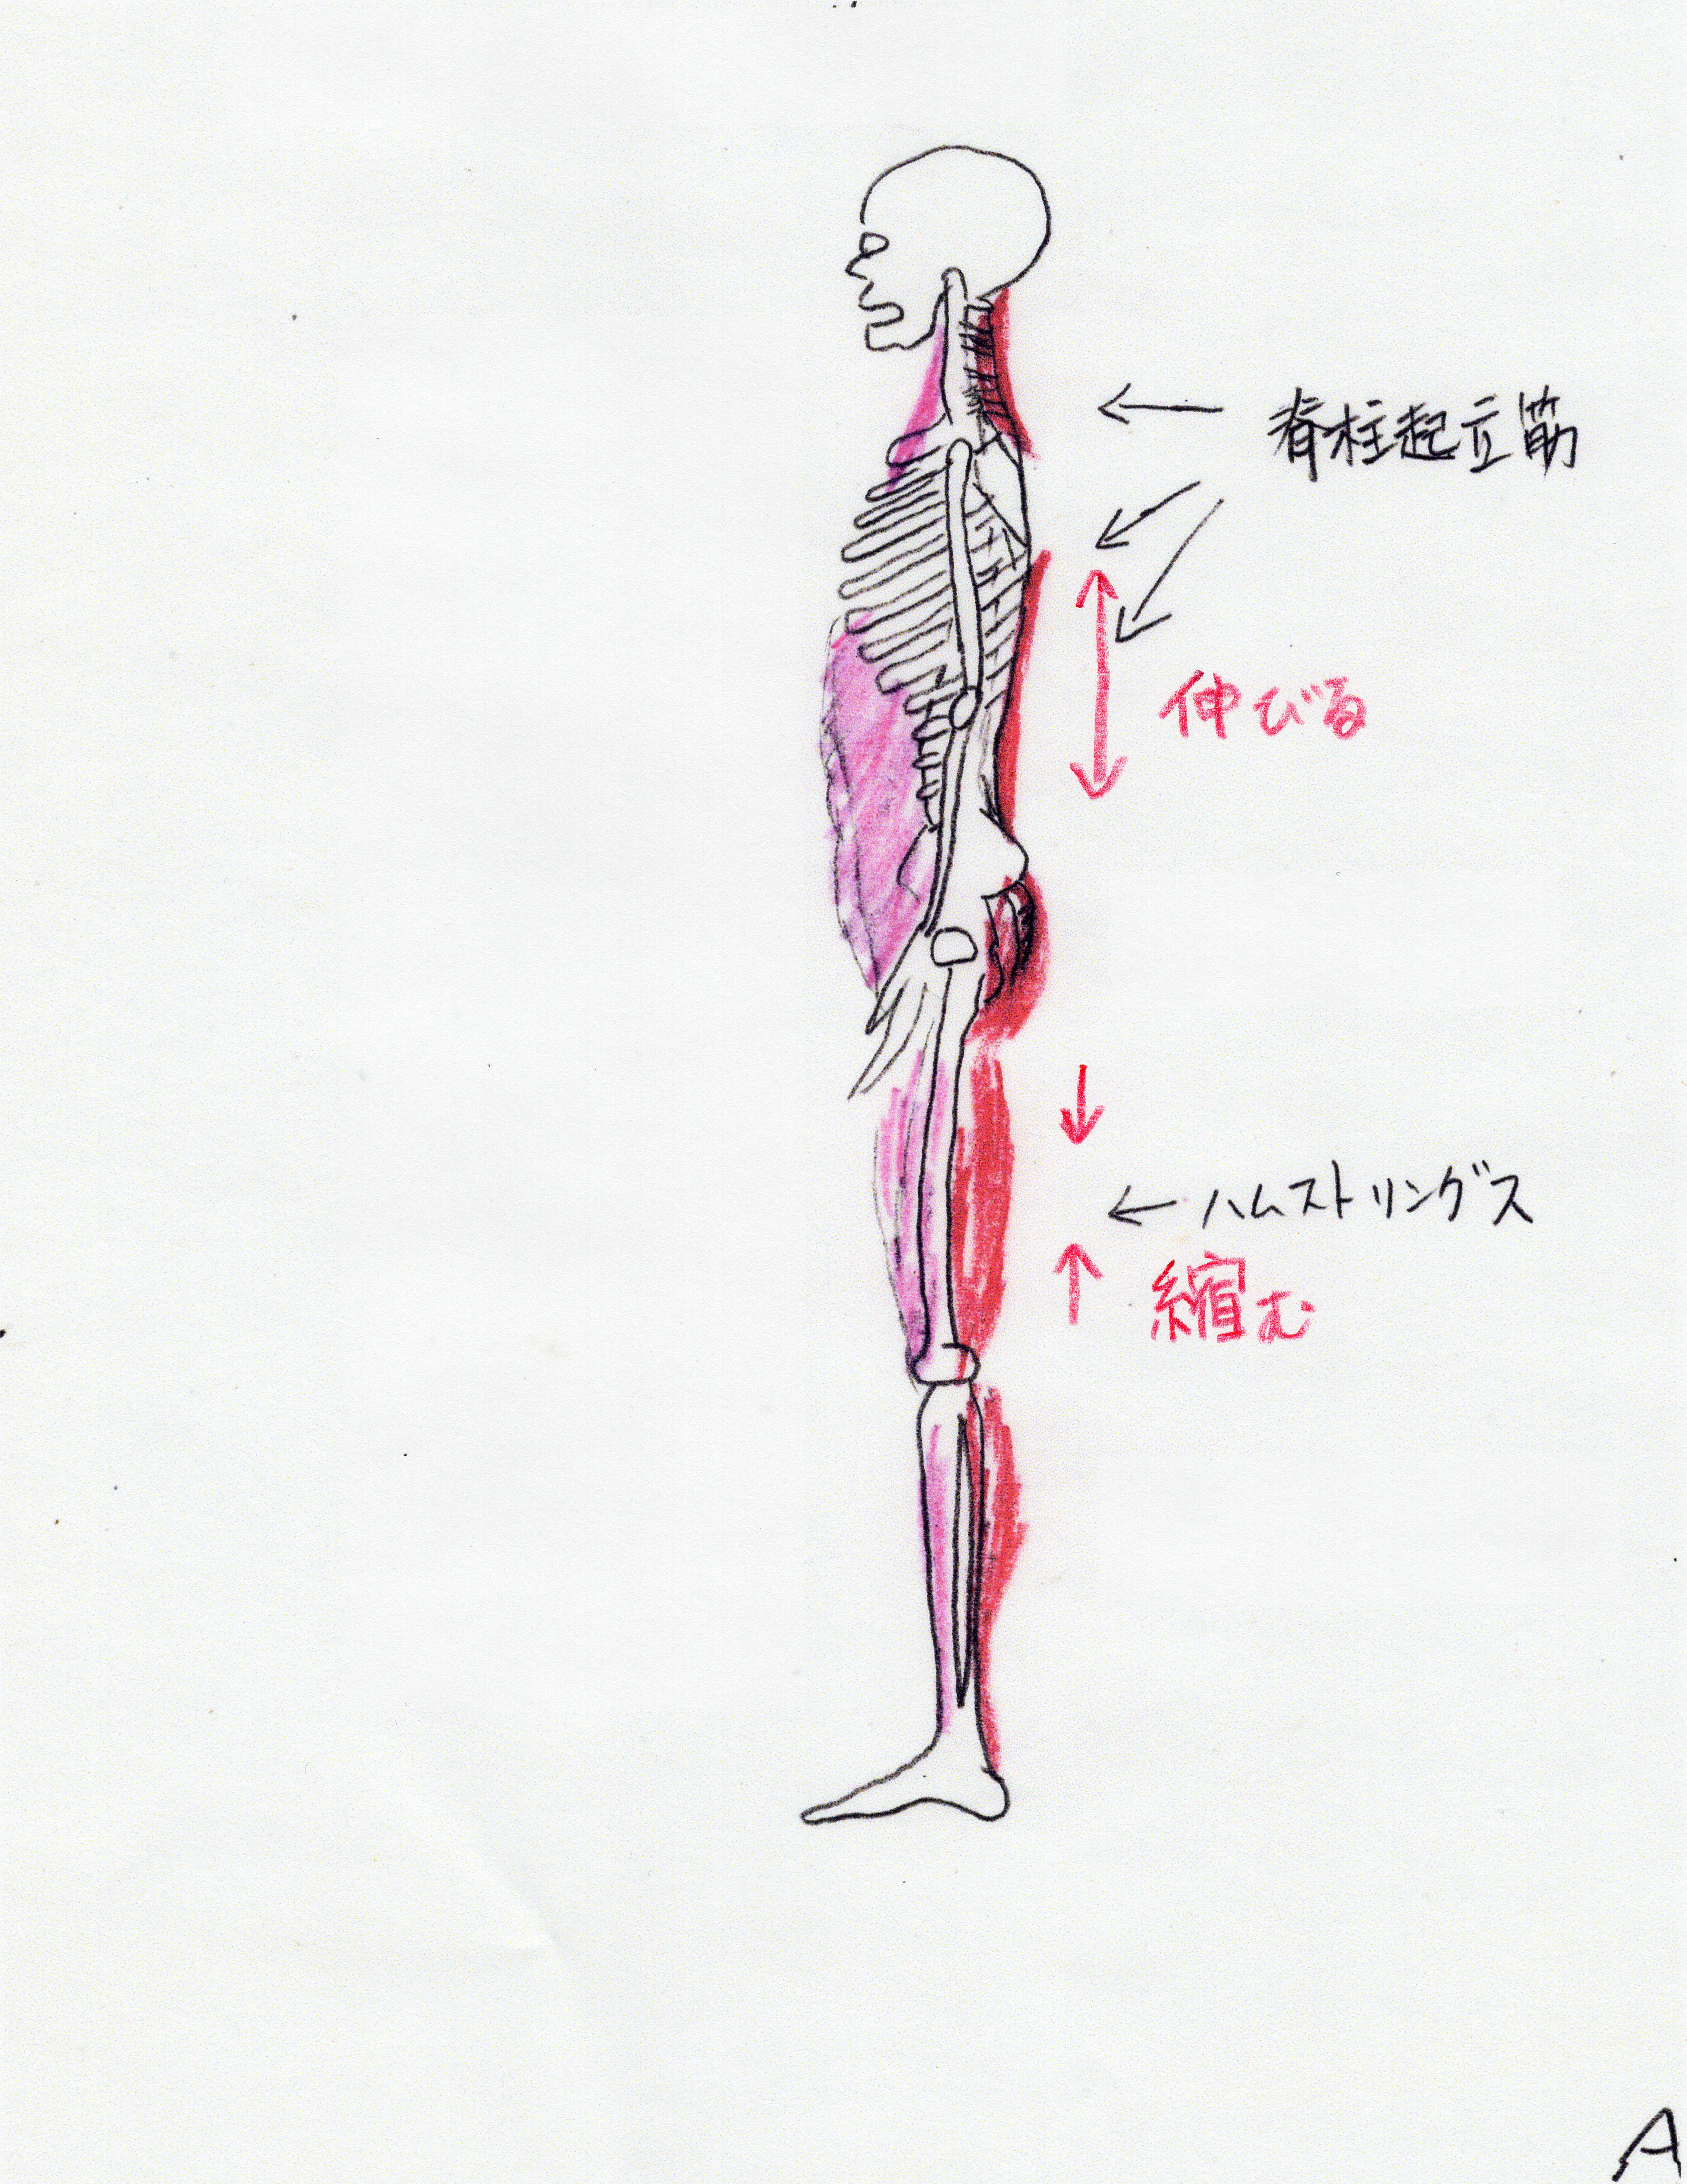 脊柱起立筋
伸びる
ハムストリングス
縮む
A